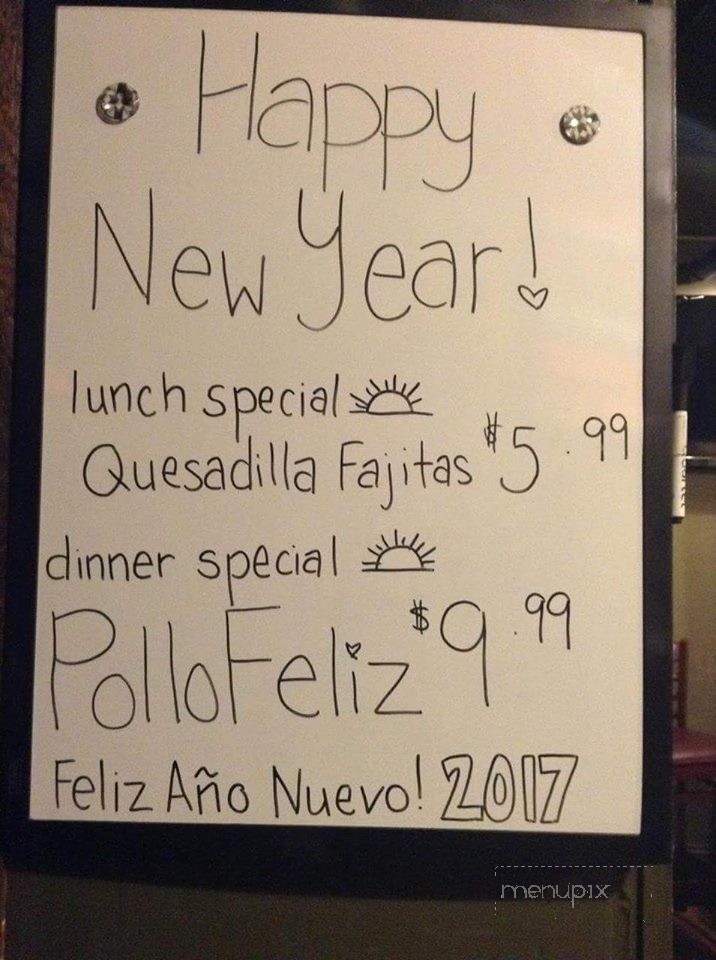 Happy
New Year!
lunch special
Quesadilla Fajitas $5.99
dinner special
Pollo Feliz $9.99
Feliz Año Nuevo! 2017
menupix